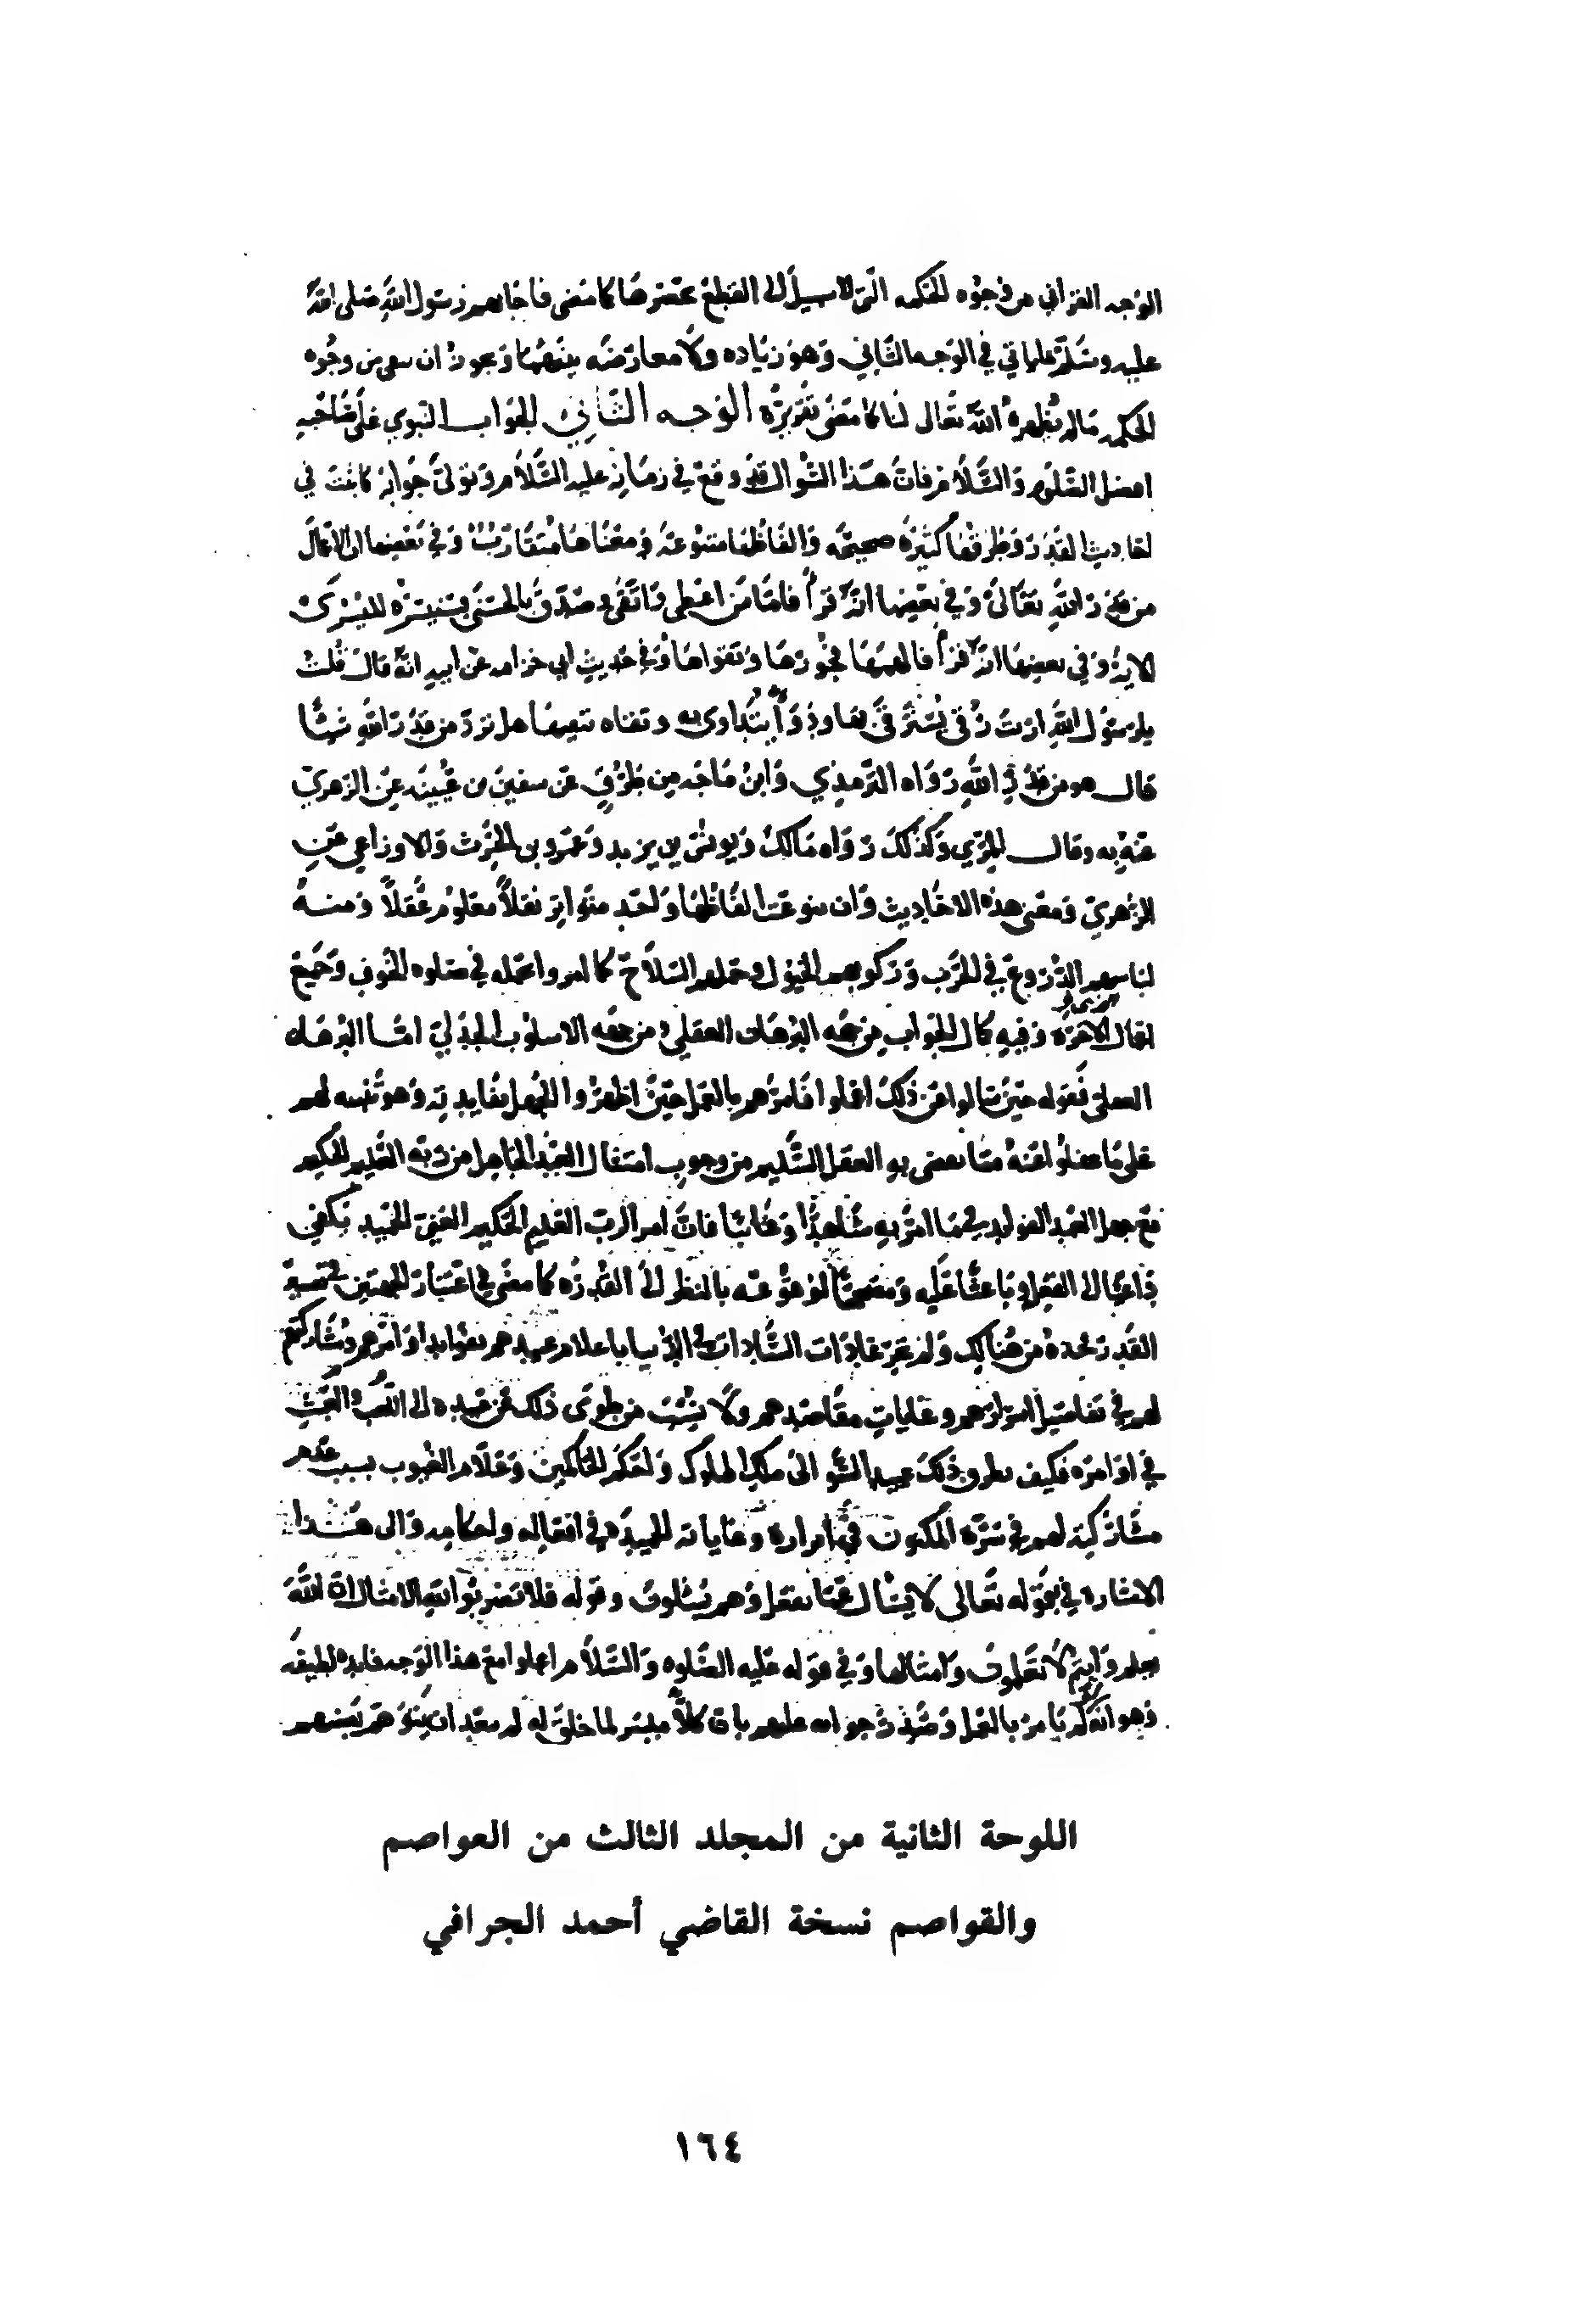 الوجه القراني من وجوه الحكمه التى لا سبيل الى القطع بحصرها كما مضى فاجابهم رسول الله صلى الله
عليه وسلم بما ياتي في الوجه الثاني وهو زياده ولا معارضه بينهما ويجوز ان يبقى من وجوه
الحكمه مالم يظهره الله تعالى لنا كما مضى تقريره الوجه الثاني الجواب النبوي على صاحبه
افضل الصلوه والسلام فان هذا السوال قد وقع في زمانه عليه السلام وتولى جوابه كما ثبت في
احاديث القدر وطرقها كثيرة صحيحه والفاظها متنوعة ومعناها متقارب وفي بعضها ان الاعمال
من قدر الله تعالى وفي بعضها انه قرأ فاما من اعطى واتقى وصدق بالحسنى فسنيسره لليسرى
الاية وفي بعضها انه قرأ فالهمها فجورها وتقواها وفي حديث ابي خزامه عن ابيه انه قال قلت
يا رسول الله ارايت رقى نسترقي بها ودواً نتداوى به وتقاه نتقيها هل ترد من قدر الله شيئا
قال هو من قدر الله رواه الترمذي وابن ماجه من طرق عن سفين بن عيينه عن الزهري
عنه به وقال المزي وكذلك رواه مالك ويونس بن يزيد وعمرو بن الحرث والاوزاعي عن
الزهري ومعنى هذه الاحاديث وان تنوعت الفاظها واحد متواتر نقلاً معلوم عقلاً ومنه
لباسهم الدروع في الحرب وركوبهم الخيول وحملهم السلاح كما امروا بحمله في صلوه الخوف وجميع
افعال الاخرة وفيه كمال الجواب من جهه البرهان العقلي ومن جهه الاسلوب الجدلي اما البرهان
العقلي فقوله حين سالوا عن ذلك اعملوا فامرهم بالعمل حين اظهروا الجهل بفايدته وهو تنبيه لهم
على ما غفلوا عنه مما يقضي به العقل السليم من وجوب امتثال العبد الجاهل من ربه العليم الحكيم
مع جهل العبد الفوايد فيما امر به شاهدًا وغائبا فان امر الرب العليم الحكيم الغني الحميد يكفي
داعيًا الى الفعل وباعثًا عليه ومقتضيا لوقوعه بالنظر الى القدره كما مضى في اعتبار الجهتين في تفسير
القدر نخذه من هنالك ولم تجر عادات السادات في الدنيا باعلام عبيدهم بفوايد اوامرهم ومشاركتهم
لهم في تفاصيل اسرارهم وغايات مقاصدهم ولا ينسب من طوى ذلك عن عبيده الى اللعب والعبث
في اوامره فكيف يطرق ذلك عبيد السو الى ملك الملوك واحكم الحاكمين وعلام الغيوب بسبب عدم
مشاركته لهم في سره المكنون في اسراره وغاياته الحميده في افعاله واحكامه والى هذا
الاشارة في نحو قوله تعالى لا يسال عما يفعل وهم يسئلون وقوله فلا تضربوا لله الامثال ان الله
يعلم وانتم لا تعلمون وامثالها وفي قوله عليه الصلوه والسلام اعملوا مع هذا الوجه فايده لطيفه
وهو انه لو لم يامر بالعمل وصدر جوابه عليهم بان كلاً ميسر لما خلق له لم يبعد ان يتوهم بعضهم
اللوحة الثانية من المجلد الثالث من العواصم
والقواصم نسخة القاضي أحمد الجرافي
١٦٤